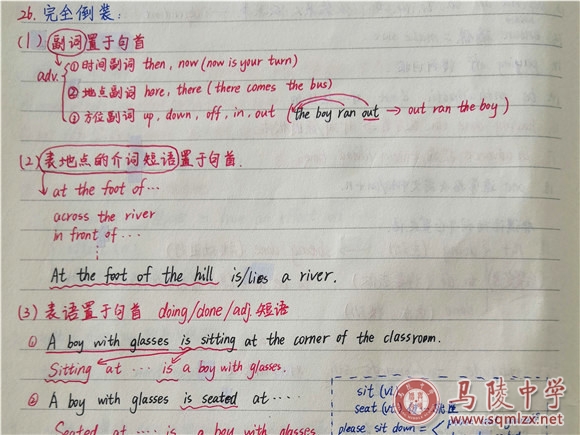 26. 完全倒装：
(1) 副词置于句首
adv. ① 时间副词 then, now (now is your turn)
② 地点副词 here, there (there comes the bus)
③ 方位副词 up, down, off, in, out (the boy ran out → out ran the boy)
(2) 表地点的介词短语置于句首.
at the foot of ...
across the river
in front of ...
At the foot of the hill is/lies a river.
(3) 表语置于句首 doing/done/adj. 短语
① A boy with glasses is sitting at the corner of the classroom.
Sitting at ... is a boy with glasses.
② A boy with glasses is seated at ...
Seated at ... is a boy with glasses
sit (vi.
seat (vt.)
please sit down = 
马陵中学
www.sqmlzx.net